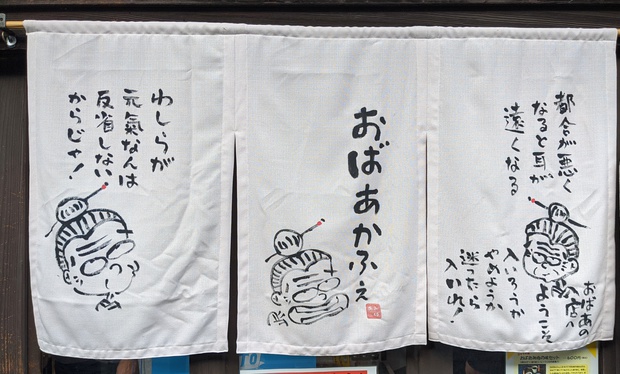 都合が悪く
なると耳が
遠くなる
おばあの
店へ
ようこそ
入いろうか
やめようか
迷ったら
入いれ!
おばあかふぇ
わしらが
元氣なんは
反省しない
からじゃ!